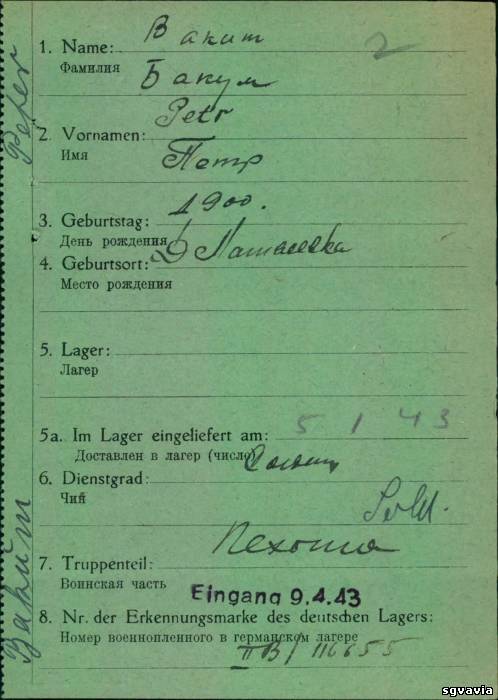 1. Name: Bakum
Фамилия
Бакум
Petr
2. Vornamen:
Имя
Петр
3. Geburtstag: 1900.
День рождения
4. Geburtsort:
Место рождения
5. Lager:
Лагер
5a. Im Lager eingeliefert am: 5 1 43
Доставлен в лагер (число)
6. Dienstgrad:
Чий
Sold.
Пехота
7. Truppenteil:
Воинская часть
Eingang 9.4.43
8. Nr. der Erkennungsmarke des deutschen Lagers:
Номер военнопленного в германском лагере
II B / 116655
Peter
Bakum
2
sgvavia